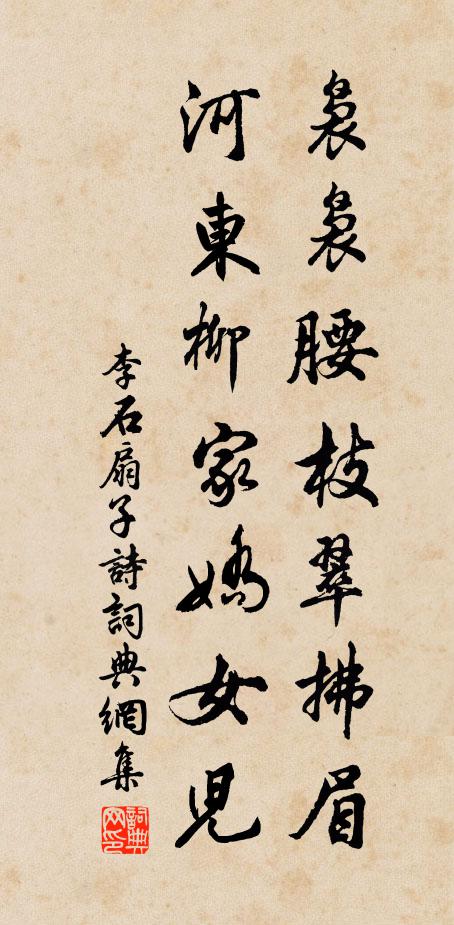 裊裊腰枝翠拂眉
河東柳家嬌女兒
李石扇子詩詞典網集
詞典
网印